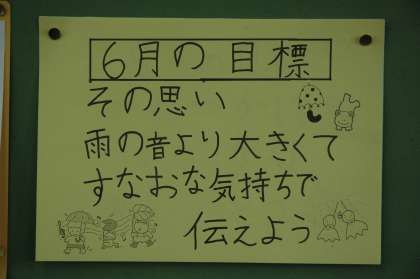 6月の目標
その思い
雨の音より大きくて
すなおな気持ちで
伝えよう